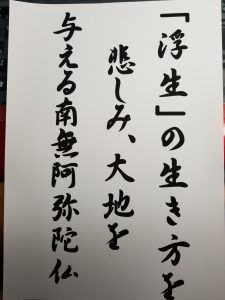 「浮生」の生き方を
悲しみ、大地を
与える南無阿弥陀仏